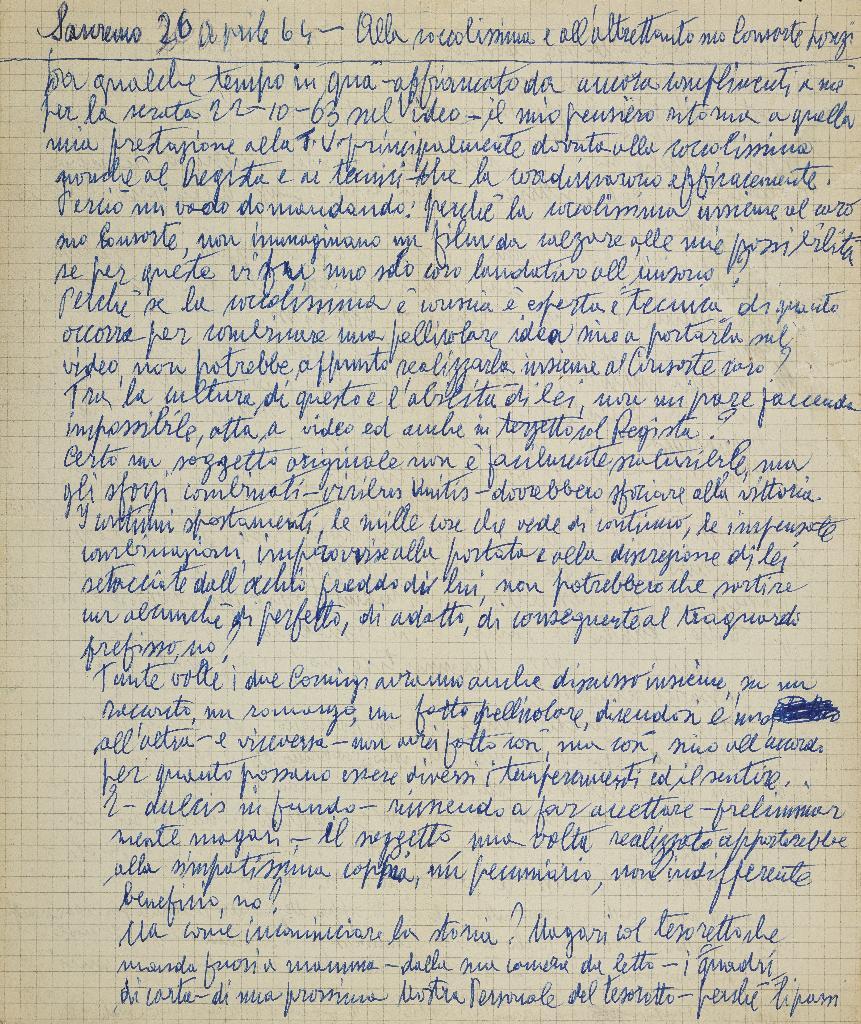 Sanremo 26 aprile 64 — Alla coccolissima e all'altrettanto suo Consorte
Da qualche tempo in quà - affiancato da ancora complimenti a me
per la serata 22-10-63 nel video - il mio pensiero ritorna a quella
mia prestazione alla T.V. principalmente dovuta alla coccolissima
nonchè al Regista e ai tecnici che la coadiuvarono efficacemente.
Perciò mi vado domandando: perchè la coccolissima insieme al caro
suo Consorte, non immaginano un film da calzare alle mie possibilità
se per queste vi fu uno solo coro laudativo all'unisono?
Perchè se la coccolissima è conscia è esperta è tecnica di quanto
occorra per combinare una pellicolare idea sino a portarla sul
video, non potrebbe, appunto realizzarla insieme al Consorte caro?
Tra la cultura di questo e l'abilità di lei, non mi pare faccenda
impossibile, atta, a video ed anche in terzetto col Regista?
Certo un soggetto originale non è facilmente scaturibile, ma
gli sforzi combinati - viribus Unitis - dovrebbero sfociare alla vittoria.
I continui spostamenti, le mille cose che vede di continuo, le impensate
combinazioni, improvvise alla portata e alla discrezione di lei
setacciate dall'occhio freddo di lui, non potrebbero che sortire
un alcunchè di perfetto, di adatto, di conseguente al traguardo
prefisso, no?
Tante volte i due Coniugi avranno anche discusso insieme, su un
racconto, un romanzo, un fatto pellicolare, dicendosi l'uno
all'altra - e viceversa - non avrei fatto così, ma così, sino all'accordo
per quanto possano essere diversi i temperamenti ed il sentire...
E - dulcis in fundo - riuscendo a far accettare - preliminar
mente magari - il soggetto una volta realizzato apporterebbe
alla simpatissima coppia, un pecuniario, non indifferente
beneficio, no?
Ma come incominciare la storia? Magari col tesoretto che
manda fuori a mamma - dalla sua camera da letto - i quadri
di carta - di una prossima Mostra Personale del tesorotto - perchè li